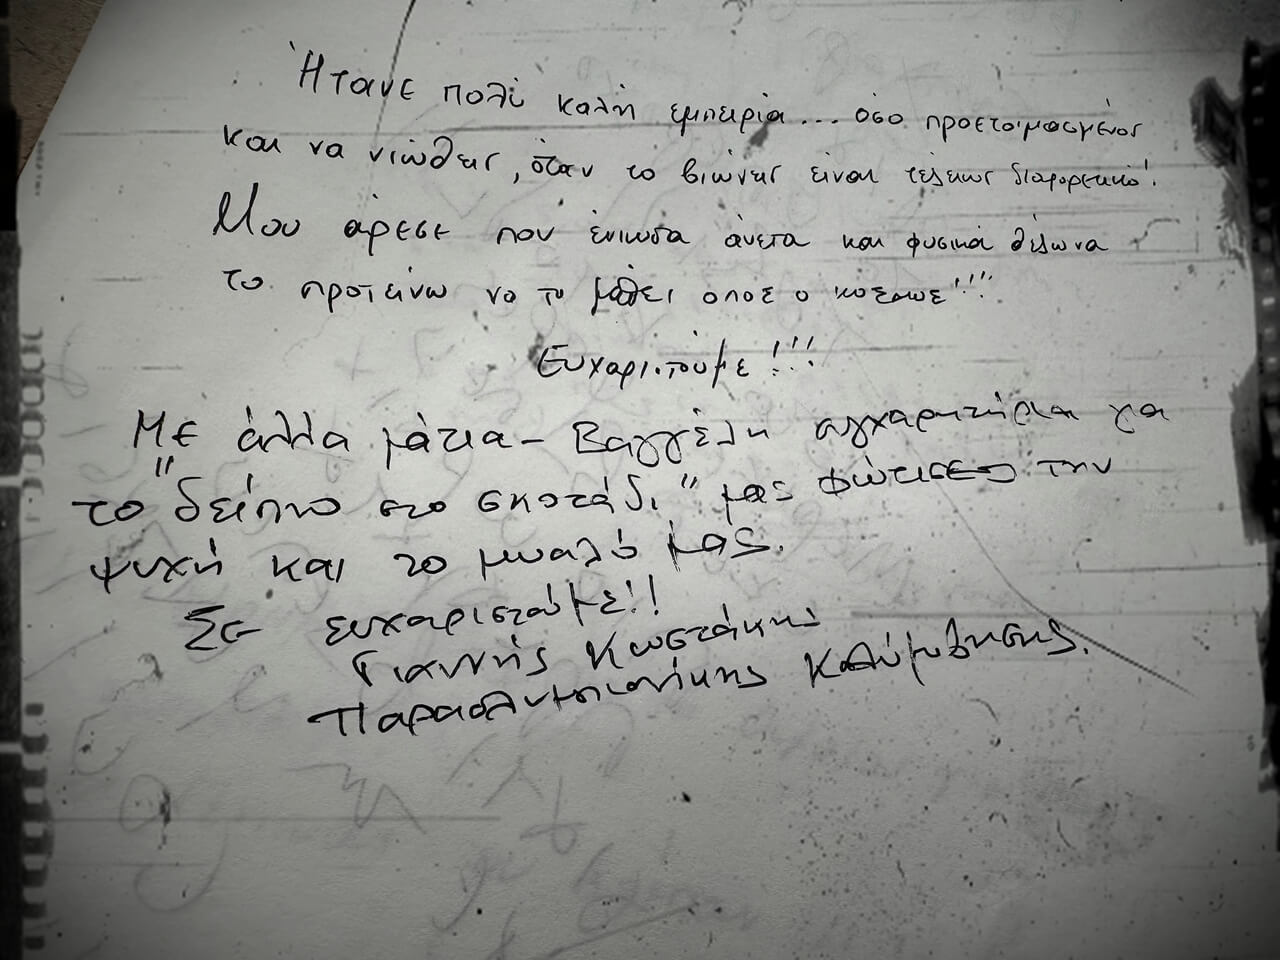 Ήτανε πολύ καλή εμπειρία... όσο προετοιμασμένος
και να νιώθεις, όταν το βιώνεις είναι τελείως διαφορετικό!
Μου άρεσε που ένιωθα άνετα και φυσικά θέλω να
το προτείνω να το μάθει όλος ο κόσμος!!!!
Ευχαριστούμε!!!
Με άλλα μάτια - Βαγγέλη συγχαρητήρια για
το "δείπνο στο σκοτάδι" μας φώτισες την
ψυχή και το μυαλό μας.
Σε ευχαριστούμε!!
Γιαννής Κωστάκης
Παραολυμπιονίκης Κολύμβησης.